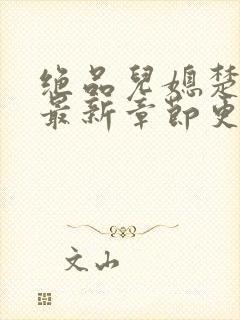 绝品兒媳楚
最新章節更
文山